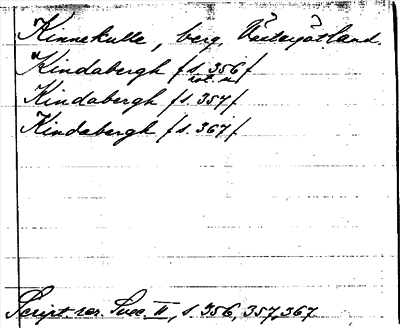 Kinnekulle, berg, Västergötland.
Kindabergh /s. 356/
not. u)
Kindabergh /s. 357/
Kindabergh /s. 367/
Script. rer. Svec. II, s. 356, 357, 367